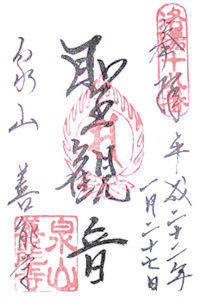 奉拝 平成二十二年
一月二十七日
聖観音
泉山 善能寺
泉山
善能寺